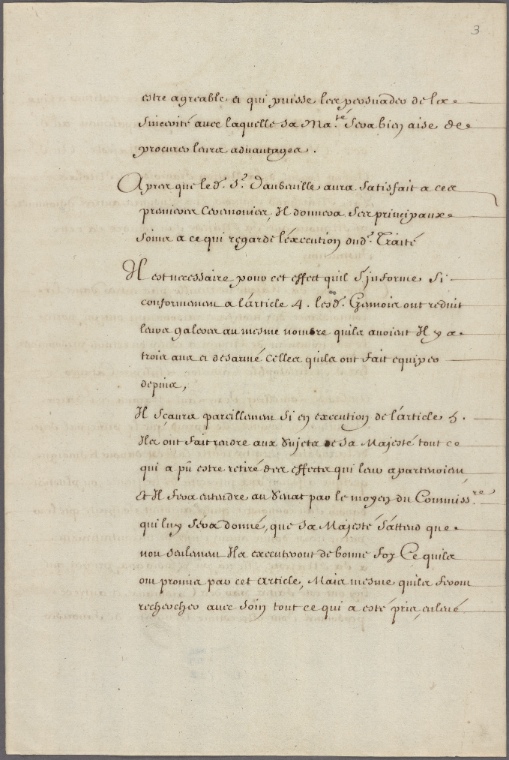 3
estre agreable et qui puisse les persuader de la
sincerité avec laquelle sa Ma.té sera bien aise de
procurer leurs advantages.
Apres que led. S.r Daubeville aura satisfait a ces
premieres Ceremonies, Il donnera ses principaux
soins a ce qui regarde l'execution dud. Traité
Il est necessaire pour cet effect qu'il s'informe si
conformement a l'article 4. lesd. Genois ont reduit
leurs galeres au mesme nombre qu'ils avoient Il y a
trois ans et desarmé celles qu'ils ont fait equiper
depuis,
Il sçaura pareillement si en execution de l'article 5.
Ils ont fait rendre aux sujets de sa Majesté tout ce
qui a pû estre retiré des effects qui leur apartenoient
Et Il fera entendre au Senat par le moyen du Commiss.re
qui luy sera donné, que sa Majesté s'attend que
non seulement Ils executeront de bonne foy Ce qu'ils
ont promis par cet article, Mais mesme qu'ils feront
rechercher avec soin tout ce qui a esté pris, enlevé